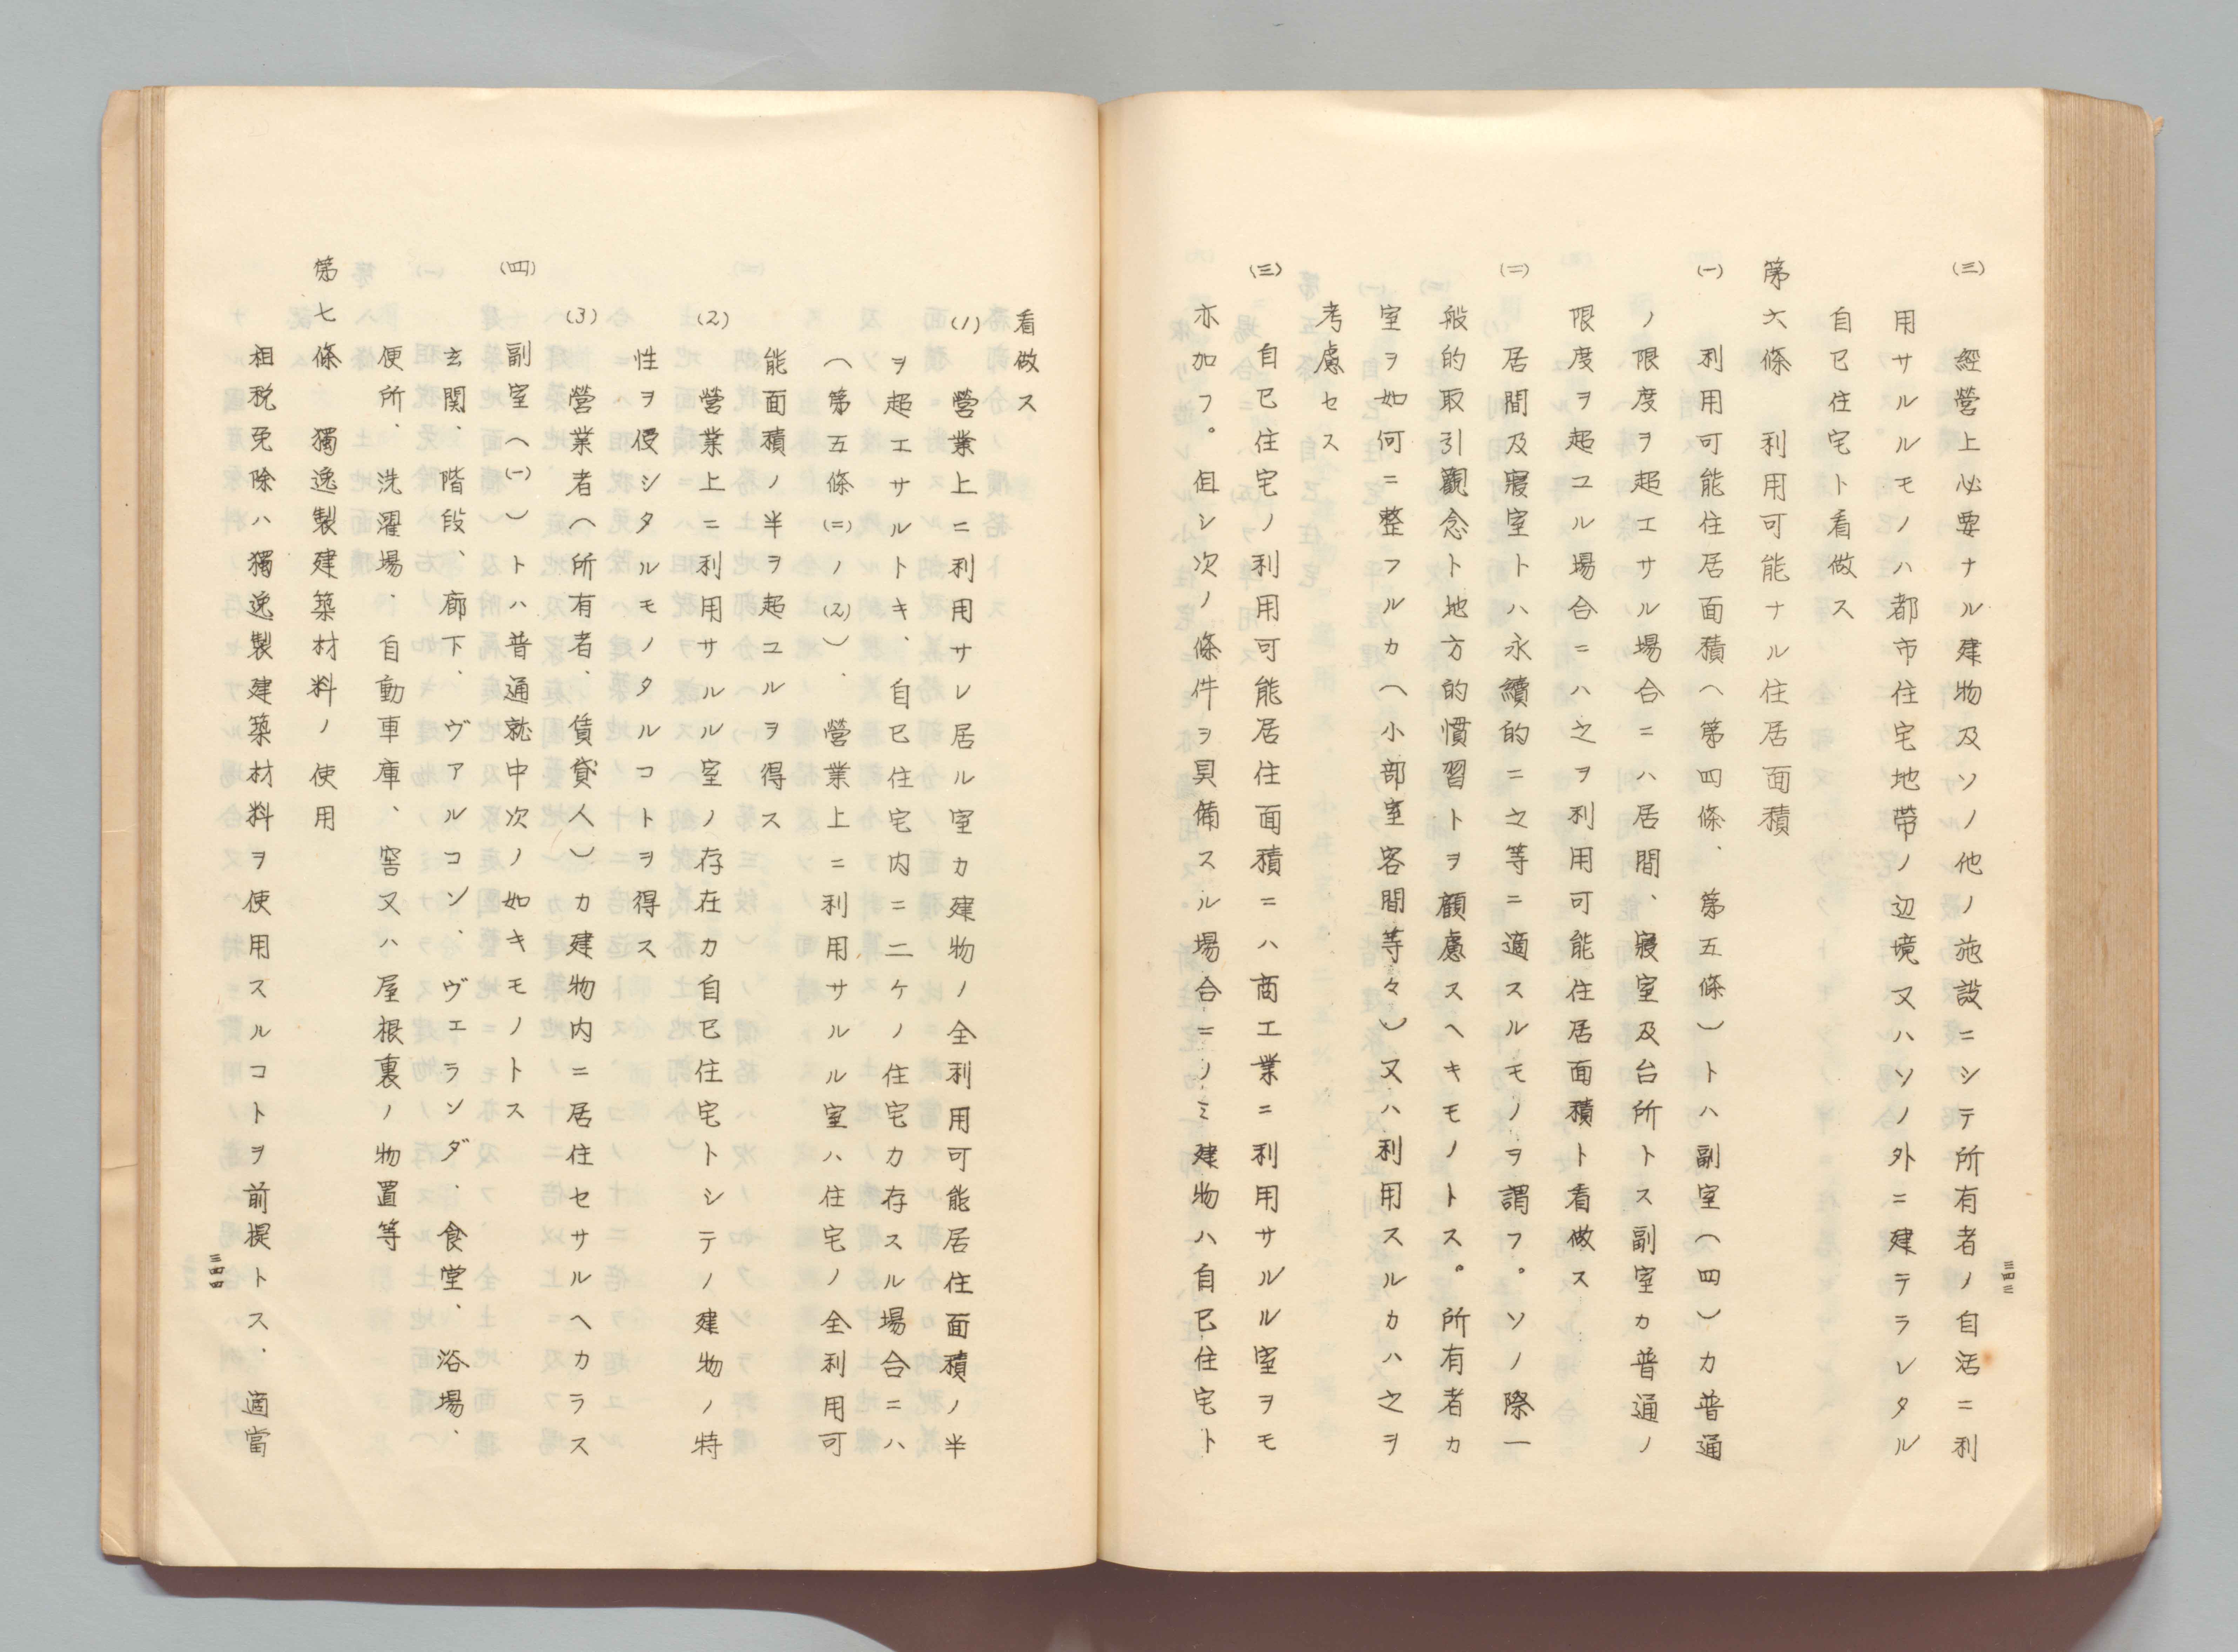 (三)　經營上必要ナル建物及ソノ他ノ施設ニシテ所有者ノ自活ニ利
用サルルモノハ都市住宅地帶ノ辺境又ハソノ外ニ建テラレタル
自己住宅ト看做ス
第六條　利用可能ナル住居面積
(一)　利用可能住居面積(第四條、第五條)トハ副室(四)カ普通
ノ限度ヲ超エサル場合ニハ居間、寢室及台所トス副室カ普通ノ
限度ヲ超ユル場合ニハ之ヲ利用可能住居面積ト看做ス
(二)　居間及寢室トハ永續的ニ之等ニ適スルモノヲ謂フ。ソノ際一
般的取引觀念ト地方的慣習トヲ顧慮スヘキモノトス。所有者カ
室ヲ如何ニ整フルカ(小部室客間等々)又ハ利用スルカハ之ヲ
考慮セス
(三)　自己住宅ノ利用可能居住面積ニハ商工業ニ利用サルル室ヲモ
亦加フ。但シ次ノ條件ヲ具備スル場合ニノミ建物ハ自己住宅ト
三四三
看做ス
(1)　營業上ニ利用サレ居ル室カ建物ノ全利用可能居住面積ノ半
ヲ超エサルトキ、自己住宅内ニ二ケノ住宅カ存スル場合ニハ
(第五條(二)ノ(2))、營業上ニ利用サルル室ハ住宅ノ全利用可
能面積ノ半ヲ超ユルヲ得ス
(2)　營業上ニ利用サルル室ノ存在カ自己住宅トシテノ建物ノ特
性ヲ侵シタルモノタルコトヲ得ス
(3)　營業者(所有者、賃貸人)カ建物内ニ居住セサルヘカラス
(四)　副室(一)トハ普通就中次ノ如キモノトス
玄関、階段、廊下、ヴァルコン、ヴェランダ、食堂、浴場、
便所、洗濯場、自動車庫、窖又ハ屋根裏ノ物置等
第七條　獨逸製建築材料ノ使用
租税免除ハ獨逸製建築材料ヲ使用スルコトヲ前提トス、適當
三四四